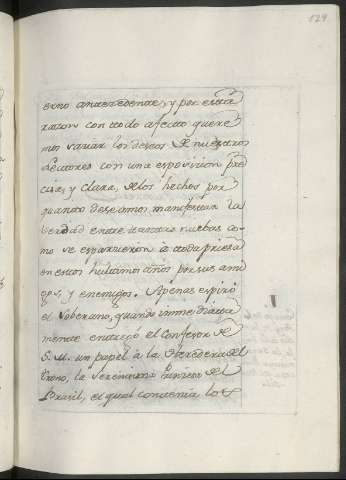 129
erno antecedente, y por esta
razon con todo afecto quere
mos saciar los deseos de nuestros
Lectores con una exposicion pre
cisa, y clara, de los hechos por
quanto deseamos manifestar la
verdad entre tantas nuebas co-
mo se esparcieron à toda priesa
en estos hultimos años por sus ami
gos, y enemigos. Apenas espirò
el Soberano, quando inmediata
mente entregó el Confesor de
S. M. un papel à la Heredera del
trono, la Serenisima Princesa del
Brasil, el qual contenia los